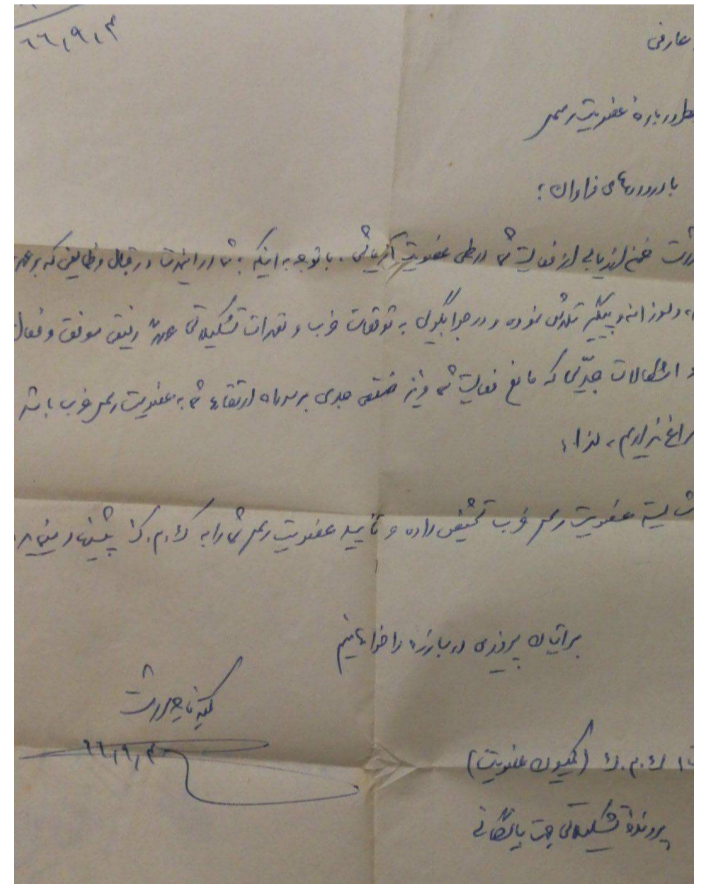 ۶۶٫۹٫۳
عارفی
درباره عضویت رسمی
با درودهای فراوان؛
ضمن ارزیابی از فعالیت شما در طی عضویت آزمایشی، با توجه به اینکه شما در این مدت در قبال وظایفی که بر عهده
دلسوزانه و پیگیر تلاش نموده و در جوابگوئی به توقعات حزب و تعهدات تشکیلاتی رفیق موفق و فعال
و اشکالات جدی‌ای که مانع فعالیت شما و نیز ضعفی جدی بر سر راه ارتقاء شما به عضویت رسمی حزب باشد
سراغ نداریم، لذا؛
عضویت رسمی حزب تشخیص داده و تأیید عضویت رسمی شما را به ک.م.ک پیشنهاد مینماید
برایتان پیروزی در مبارزه را خواهانیم
کمیته ناحیه
۶۶٫۹٫۳
ک.م.ک (کمیسیون عضویت)
پرونده تشکیلاتی جهت بایگانی